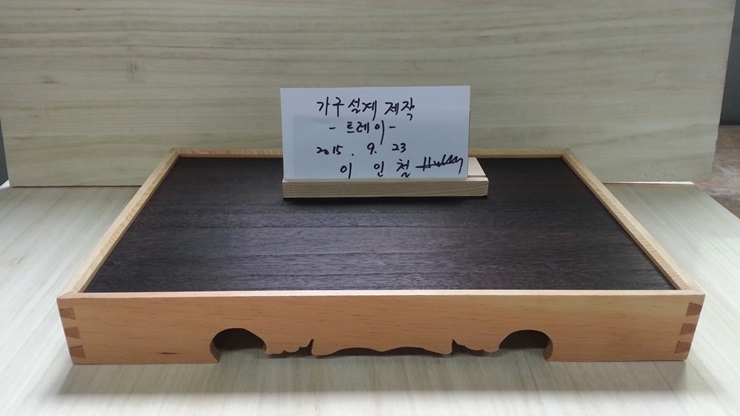 가구설계 제작
- 트레이 -
2015. 9. 23
이 인 철